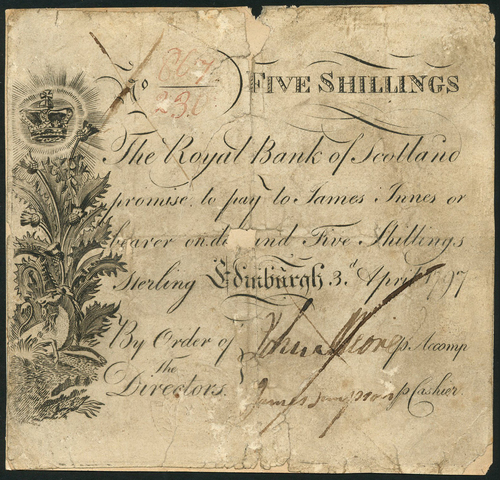 No 867/230 FIVE SHILLINGS
The Royal Bank of Scotland
promise to pay to James Innes or
bearer on d und Five Shillings
Sterling Edinburgh 3.d April 1797
By Order of p. Accomp
the
Directors. James p Cashier.